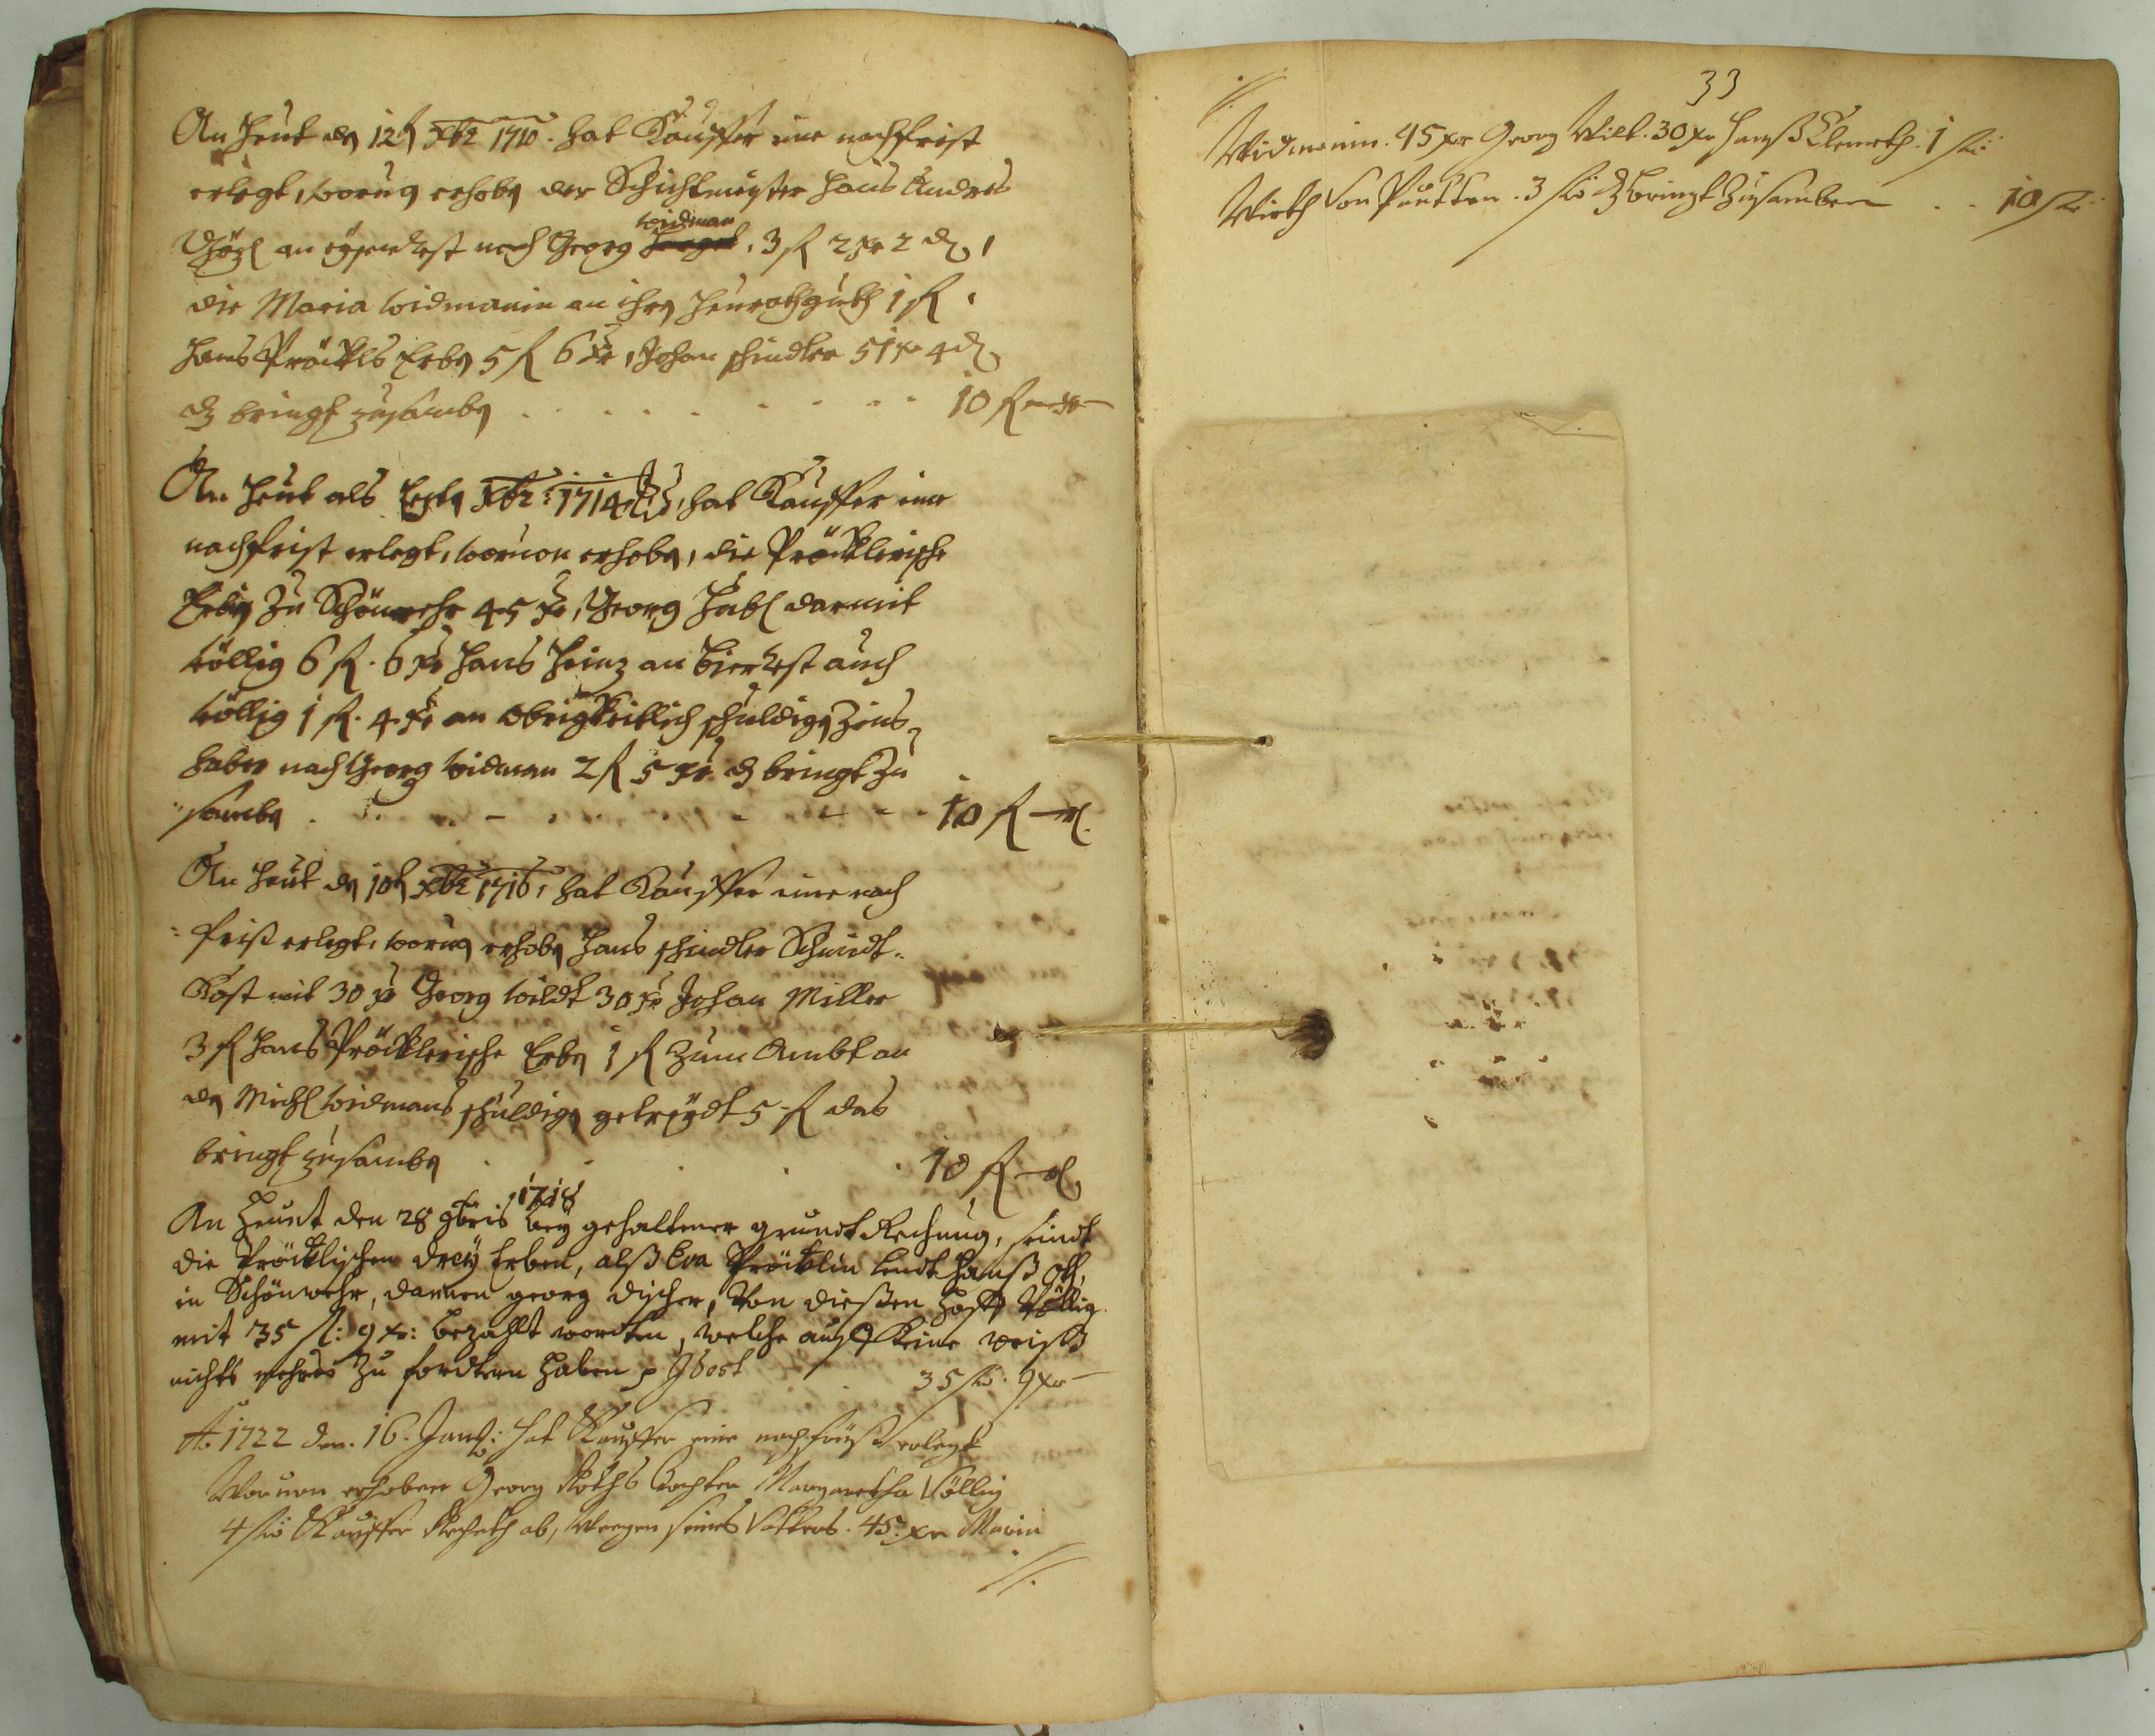 An heut den 12ten Xbr 1710. hat Kauffer eine nachfrist
erlegt, worvon erhoben der Schichtmeister Hans Andres
an rest nach Georg widman 3 fl 2 xr 2 d,
die Maria widmanin an ihren heurathguth 1 fl.
Hans Pröckls Erben 5 fl 6 xr, Johan schindler 51 xr 4 d
dz bringt zusamben . . . . . . . . 10 fl — xr —
An heut als Xbr: 1714 hat Kauffer eine
nachfrist erlegt, worvon erhoben, die Pröcklerische
Erben zu Schönwehr 45 xr, Georg Habl darmit
völlig 6 fl. 6 xr Hans Heinz an Bier rest auch
völlig 1 fl. 4 xr an obrigkeitlich schuldigen Zins
haber nach Georg widman 2 fl 5 xr dz bringt zu
samben . . . . . . . . 10 fl —
An heut den 10ten Xbr 1716, hat Kauffer eine nach
frist erlegt, worvon erhoben Hans schindler Schmidt
Kost mit 30 xr Georg wildt 30 xr Johan Miller
3 fl Hans Pröcklerische Erben 1 fl Zum Ambt an
den Michl widmans schuldigen getreydt 5 fl das
bringt zusamben . . . . 10 fl —
An heunt den 28 9bris 1718 bey gehaltener grundt Rechnung, seindt
die Pröcklischen drey Erben, alß Eva Pröcklin Hanß
in Schönwehr, dannen georg discher, Von dießen Hoff Völlig
mit 35 fl: 9 xr: bezahlt worden, welche auff keine weiß
nichts mehres zu fordtern haben 35 fl: 9 xr —
Ao 1722 den. 16. Janu: hat Kauffer eine nachfrist erlegt
Worvon erhoben Georg Roths Tochter Margaretha Völlig
4 fl Kauffer Rechneth ab, Wegen seines Vatters. 45. xr Maria
//.
33
//.
Widmanin. 45 xr Georg Wilt. 30 xr Hanß Clemeth. 1 fl
Wirth Von Puntten. 3 fl dz bringt Zusamben . . 10 fl